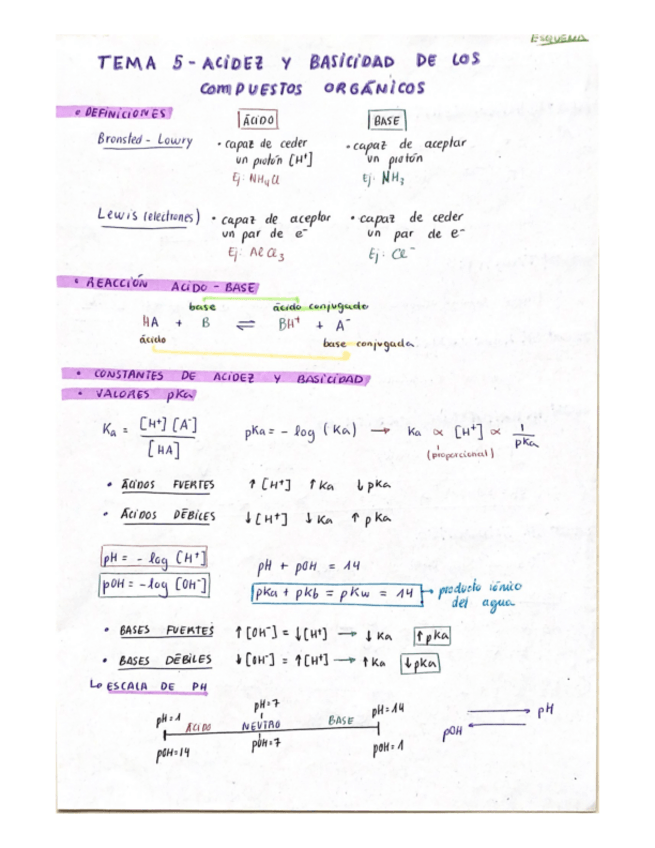 ESQUEMA
TEMA 5 - ACIDEZ Y BASICIDAD DE LOS
COMPUESTOS ORGÁNICOS
• DEFINICIONES
ÁCIDO BASE
Bronsted - Lowry • capaz de ceder • capaz de aceptar
un protón [H⁺] un protón
Ej: NH₄Cl Ej: NH₃
Lewis (electrones) • capaz de aceptar • capaz de ceder
un par de e⁻ un par de e⁻
Ej: AlCl₃ Ej: Cl⁻
• REACCIÓN ACIDO - BASE
base ácido conjugado
HA + B ⇌ BH⁺ + A⁻
ácido base conjugada
• CONSTANTES DE ACIDEZ Y BASICIDAD
• VALORES pKa
Ka = [H⁺] [A⁻] / [HA] pKa = - log (Ka) → Ka ∝ [H⁺] ∝ 1/pKa
(proporcional)
• ÁCIDOS FUERTES ↑ [H⁺] ↑ Ka ↓ pKa
• ÁCIDOS DÉBILES ↓ [H⁺] ↓ Ka ↑ pKa
pH = - log [H⁺]
pH + pOH = 14
pOH = - log [OH⁻] pKa + pKb = pKw = 14 → producto iónico
del agua
• BASES FUERTES ↑ [OH⁻] = ↓ [H⁺] → ↓ Ka ↑ pKa
• BASES DÉBILES ↓ [OH⁻] = ↑ [H⁺] → ↑ Ka ↓ pKa
↳ ESCALA DE PH
pH = 1 pH = 7 pH = 14
ÁCIDO NEUTRO BASE
pOH = 14 pOH = 7 pOH = 1
→ pH
pOH ←